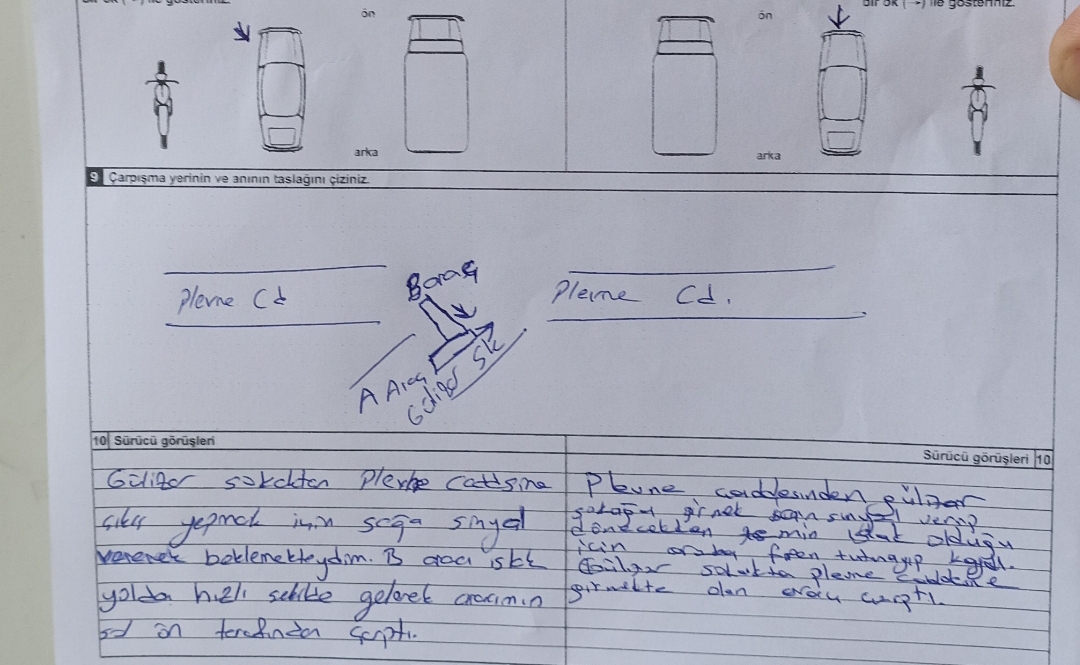 bir ok (→) ile gösteriniz.
ön
arka
ön
bir ok (→) ile gösteriniz.
arka
9 Çarpışma yerinin ve anının taslağını çiziniz.
Plevne Cd
B araç
Plevne Cd.
A Araç
Gülizar Sk
10 Sürücü görüşleri
Gülizar sokaktan Plevne cattesine
çıkış yapmak için sağa sinyal
vererek beklemekteydim. B aracı ıslak
yolda hızlı şekilde gelerek aracımın
sol ön tarafından çarptı.
Sürücü görüşleri 10
Plevne caddesinden gülizar
sokağa girmek için sinyal verip
dönecekken zemin ıslak olduğu
için araba fren tutmayıp kaydı.
Gülizar sokakta plevne caddesine
girmekte olan araca çarptı.